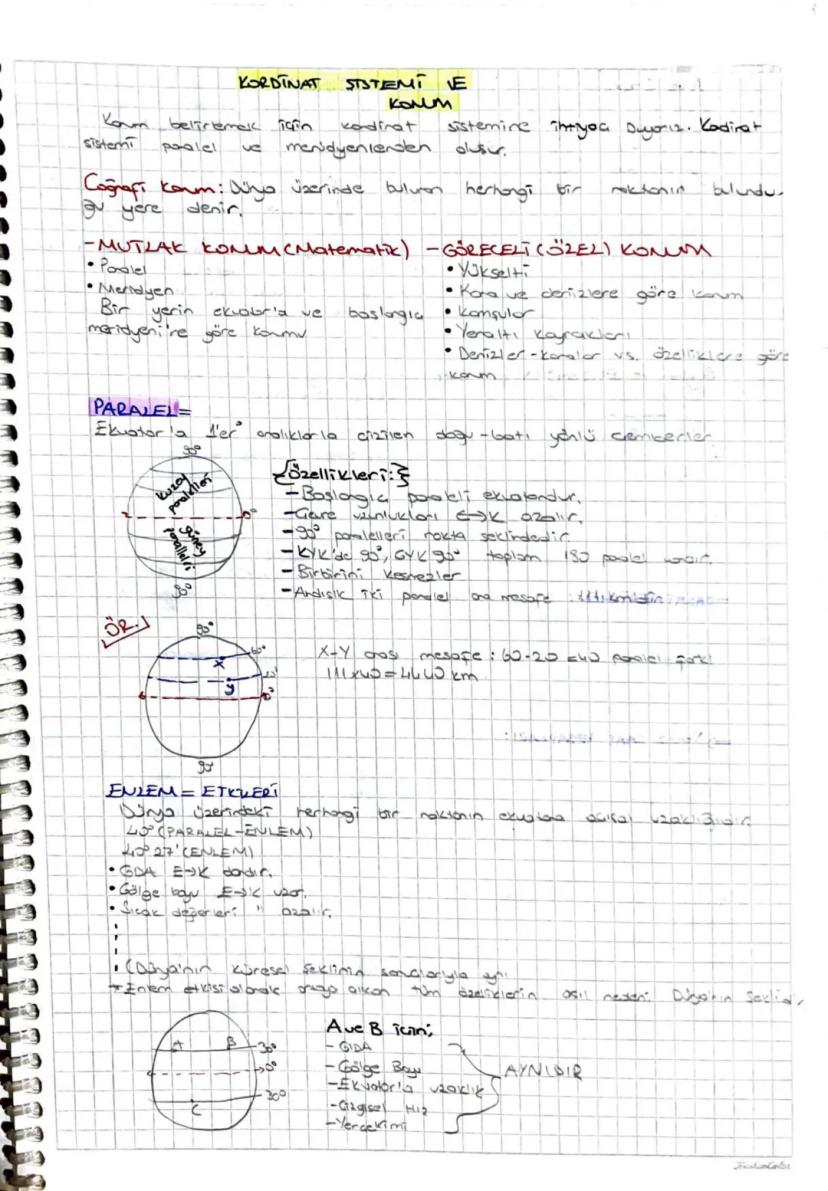 KORDİNAT SİSTEMİ VE
KONUM
Konum belirlemek için kordinat sistemine ihtiyaç Duyarız. Kodinat
sistemi paralel ve meridyenlerden oluşur.
Coğrafi Konum: Dünya üzerinde bulunan herhangi bir noktanın bulundu-
ğu yere denir.
-MUTLAK KONUM (Matematik)
• Paralel
• Meridyen
Bir yerin ekvator'a ve başlangıç
meridyeni'ne göre konumu
-GÖRECELİ (ÖZEL) KONUM
• Yükselti
• Kara ve denizlere göre konum
• Komşular
• Yeraltı Kaynakları
• Denizler-karalar vs. özelliklere göre
konum
PARALEL=
Ekvator'la 1'er° aralıklarla çizilen doğu-batı yönlü çemberler
90°
Kuzey paralelleri
0°
Güney paralelleri
90°
{Özellikleri:}
-Başlangıç paraleli ekvatordur.
-Çevre uzunlukları E→K azalır.
-90° paralelleri nokta şeklindedir.
-KYK'de 90°, GYK 90° toplam 180 paralel vardır.
-Birbirini kesmezler
-Ardışık iki paralel ara mesafe 111 km'dir
ÖR.
90°
60°
X
20°
y
0°
90°
X-Y arası mesafe: 60-20=40 paralel farkı
111x40=4440 km
ENLEM= ETKİLERİ
Dünya üzerindeki herhangi bir noktanın ekvatora açısal uzaklığıdır.
40° (PARALEL-ENLEM)
40° 27' (ENLEM)
• GDA E→K daralır.
• Gölge boyu E→K uzar.
• Sıcak değerleri " azalır.
(Dünya'nın küresel şeklinin sonuçlarıyla aynı
*Enlem etkisi olarak ortaya çıkan tüm özelliklerin asıl nedeni Dünya'nın Şeklidir.
A B 30°
0°
C 30°
A ve B için;
-GIDA
-Gölge Boyu
-Ekvator'la uzaklık
-Çizgisel Hız
-Yerçekimi
AYNIDIR